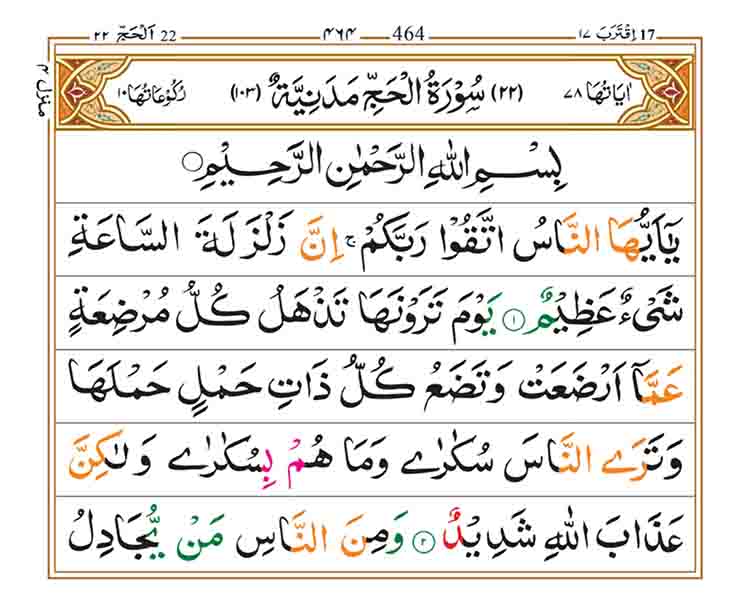 22 اَلْحَجّ ٢٢ — ٤٦٤ — 464 — ١٧ اِقْتَرَبَ 17
منزل ٤
اٰيَاتُهَا ٧٨ (٢٢) سُوْرَةُ الْحَجِّ مَدَنِيَّةٌ (١٠٣) رُكُوْعَاتُهَا ١٠
بِسْمِ اللّٰهِ الرَّحْمٰنِ الرَّحِيْمِ
يٰۤاَيُّهَا النَّاسُ اتَّقُوْا رَبَّكُمْ ۚ اِنَّ زَلْزَلَةَ السَّاعَةِ
شَیْءٌ عَظِيْمٌ ١ يَوْمَ تَرَوْنَهَا تَذْهَلُ كُلُّ مُرْضِعَةٍ
عَمَّاۤ اَرْضَعَتْ وَتَضَعُ كُلُّ ذَاتِ حَمْلٍ حَمْلَهَا
وَتَرَے النَّاسَ سُكٰرٰے وَمَا هُمْ بِسُكٰرٰے وَلٰكِنَّ
عَذَابَ اللّٰهِ شَدِيْدٌ ٢ وَمِنَ النَّاسِ مَنْ يُّجَادِلُ